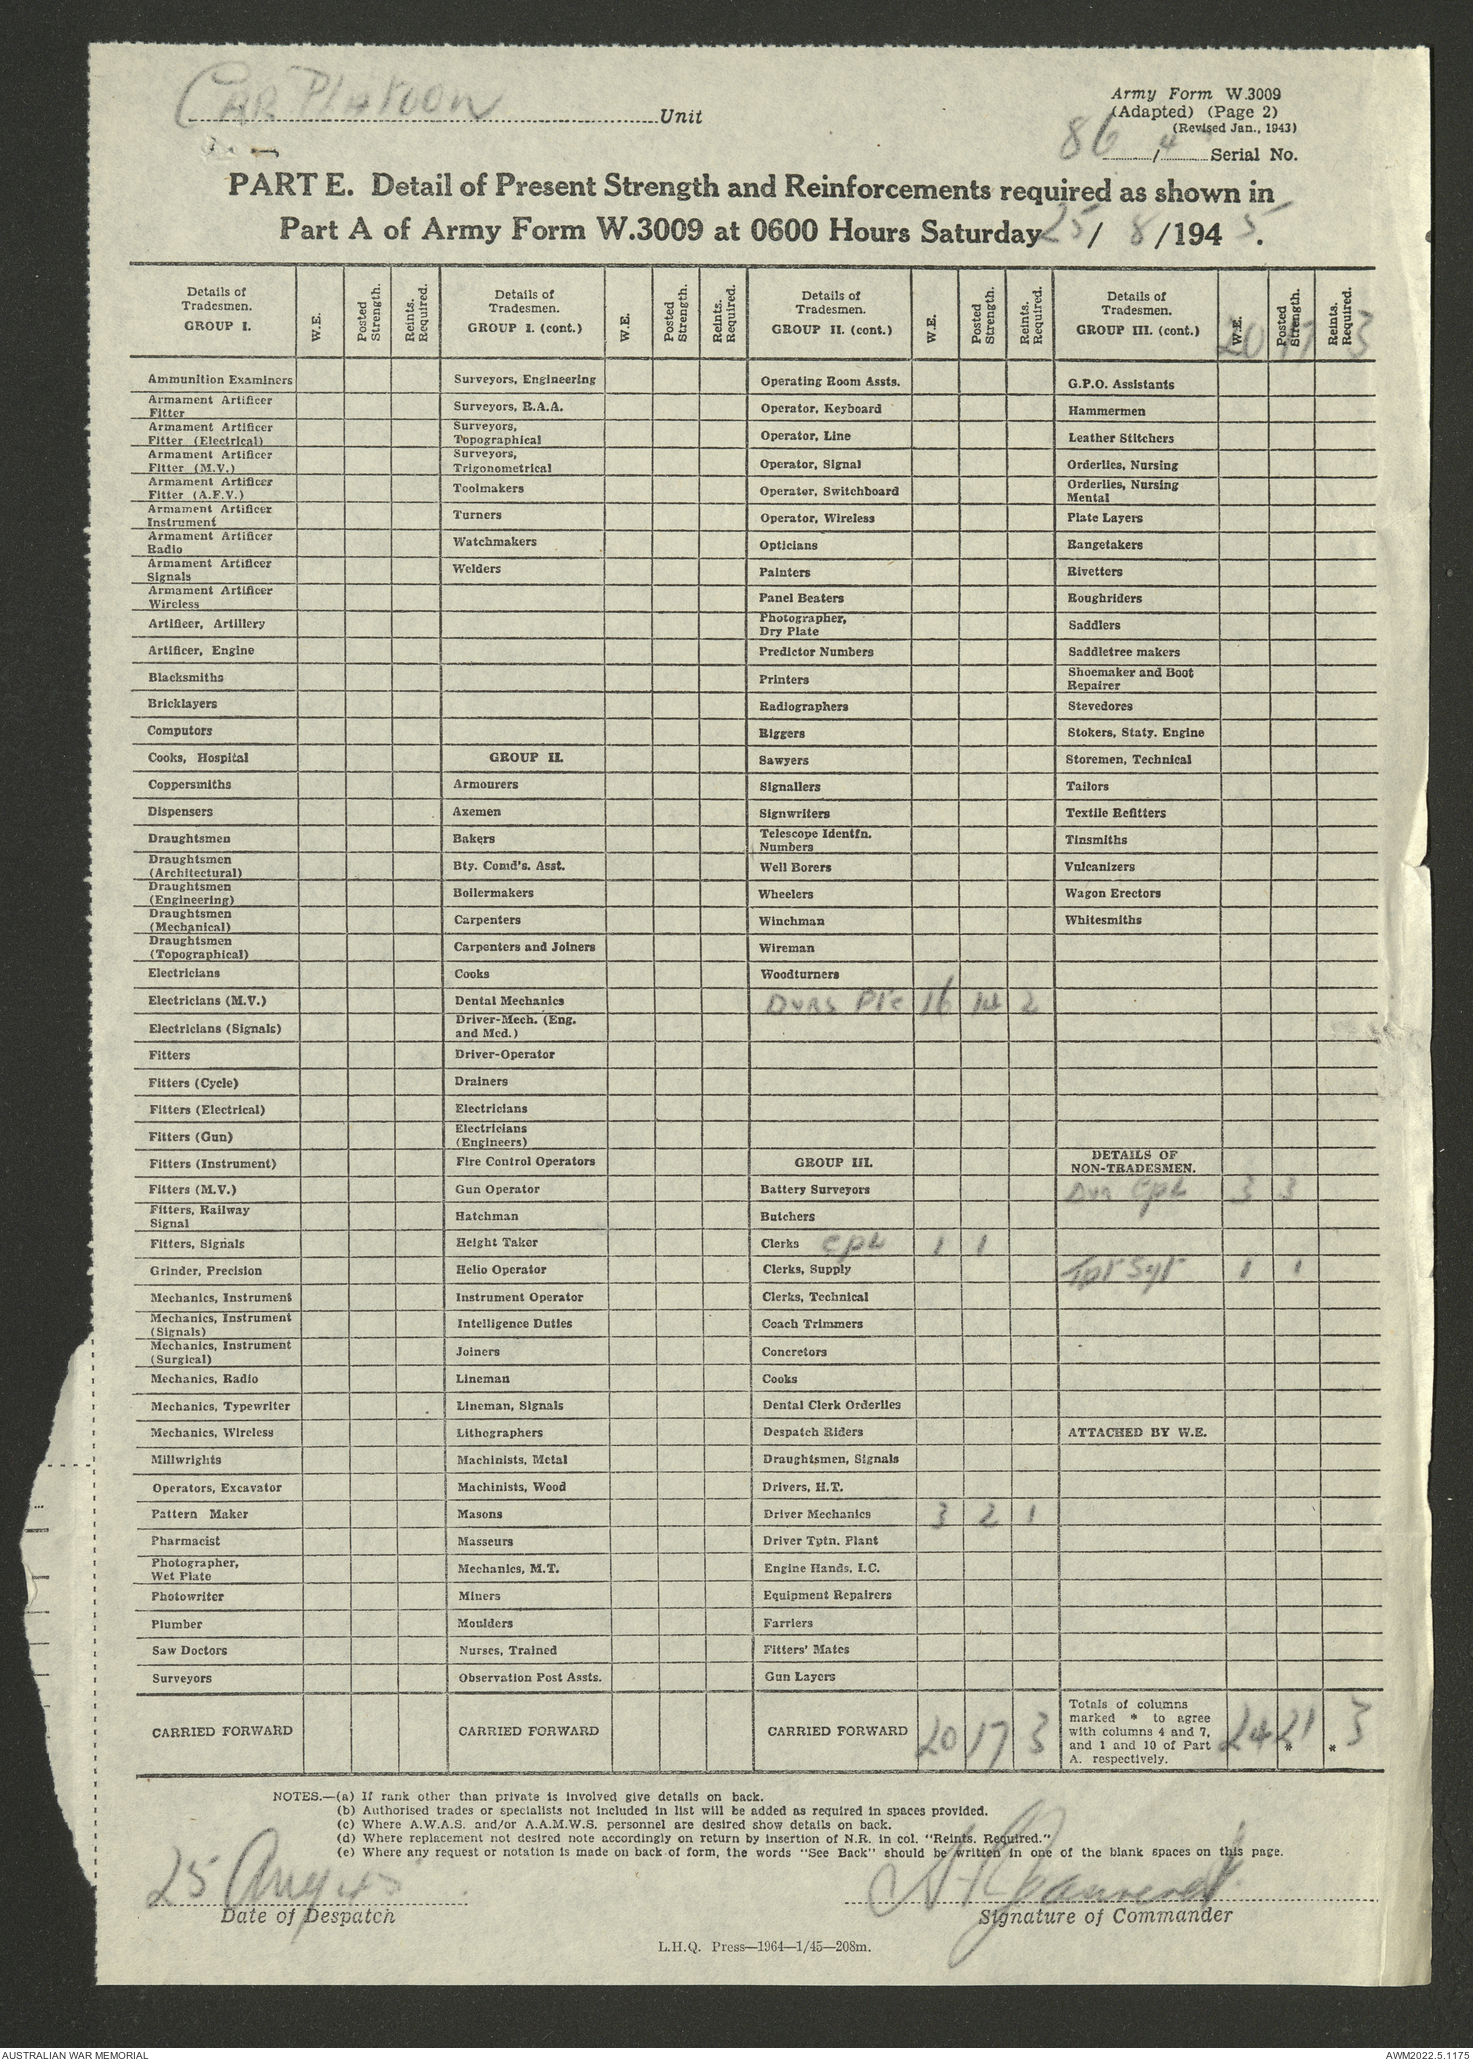 Car Platoon Unit
Army Form W.3009
(Adapted) (Page 2)
(Revised Jan., 1943)
86 / 4 Serial No.
PART E. Detail of Present Strength and Reinforcements required as shown in
Part A of Army Form W.3009 at 0600 Hours Saturday 25/ 8 /194 5.
Details of Tradesmen. GROUP I. W.E. Posted Strength. Reints. Required. Details of Tradesmen. GROUP I. (cont.) W.E. Posted Strength. Reints. Required. Details of Tradesmen. GROUP II. (cont.) W.E. Posted Strength. Reints. Required. Details of Tradesmen. GROUP III. (cont.) W.E. Posted Strength. Reints. Required.
20 17 3
Ammunition Examiners Surveyors, Engineering Operating Room Assts. G.P.O. Assistants
Armament Artificer Fitter Surveyors, R.A.A. Operator, Keyboard Hammermen
Armament Artificer Fitter (Electrical) Surveyors, Topographical Operator, Line Leather Stitchers
Armament Artificer Fitter (M.V.) Surveyors, Trigonometrical Operator, Signal Orderlies, Nursing
Armament Artificer Fitter (A.F.V.) Toolmakers Operator, Switchboard Orderlies, Nursing Mental
Armament Artificer Instrument Turners Operator, Wireless Plate Layers
Armament Artificer Radio Watchmakers Opticians Rangetakers
Armament Artificer Signals Welders Painters Rivetters
Armament Artificer Wireless Panel Beaters Roughriders
Artificer, Artillery Photographer, Dry Plate Saddlers
Artificer, Engine Predictor Numbers Saddletree makers
Blacksmiths Printers Shoemaker and Boot Repairer
Bricklayers Radiographers Stevedores
Computors Riggers Stokers, Staty. Engine
Cooks, Hospital GROUP II. Sawyers Storemen, Technical
Coppersmiths Armourers Signallers Tailors
Dispensers Axemen Signwriters Textile Refitters
Draughtsmen Bakers Telescope Identfn. Numbers Tinsmiths
Draughtsmen (Architectural) Bty. Comd's. Asst. Well Borers Vulcanizers
Draughtsmen (Engineering) Boilermakers Wheelers Wagon Erectors
Draughtsmen (Mechanical) Carpenters Winchman Whitesmiths
Draughtsmen (Topographical) Carpenters and Joiners Wireman
Electricians Cooks Woodturners
Electricians (M.V.) Dental Mechanics Dvrs Pte 16 14 2
Electricians (Signals) Driver-Mech. (Eng. and Med.)
Fitters Driver-Operator
Fitters (Cycle) Drainers
Fitters (Electrical) Electricians
Fitters (Gun) Electricians (Engineers)
Fitters (Instrument) Fire Control Operators GROUP III. DETAILS OF NON-TRADESMEN.
Fitters (M.V.) Gun Operator Battery Surveyors Dvr Cpl 3 3
Fitters, Railway Signal Hatchman Butchers
Fitters, Signals Height Taker Clerks Cpl 1 1
Grinder, Precision Helio Operator Clerks, Supply Tpt Sgt 1 1
Mechanics, Instrument Instrument Operator Clerks, Technical
Mechanics, Instrument (Signals) Intelligence Duties Coach Trimmers
Mechanics, Instrument (Surgical) Joiners Concretors
Mechanics, Radio Lineman Cooks
Mechanics, Typewriter Lineman, Signals Dental Clerk Orderlies
Mechanics, Wireless Lithographers Despatch Riders ATTACHED BY W.E.
Millwrights Machinists, Metal Draughtsmen, Signals
Operators, Excavator Machinists, Wood Drivers, H.T.
Pattern Maker Masons Driver Mechanics 3 2 1
Pharmacist Masseurs Driver Tptn. Plant
Photographer, Wet Plate Mechanics, M.T. Engine Hands, I.C.
Photowriter Miners Equipment Repairers
Plumber Moulders Farriers
Saw Doctors Nurses, Trained Fitters' Mates
Surveyors Observation Post Assts. Gun Layers
CARRIED FORWARD CARRIED FORWARD CARRIED FORWARD 20 17 3 Totals of columns marked * to agree with columns 4 and 7, and 1 and 10 of Part A. respectively. 24 21 * * 3
NOTES.—(a) If rank other than private is involved give details on back.
(b) Authorised trades or specialists not included in list will be added as required in spaces provided.
(c) Where A.W.A.S. and/or A.A.M.W.S. personnel are desired show details on back.
(d) Where replacement not desired note accordingly on return by insertion of N.R. in col. "Reints. Required."
(e) Where any request or notation is made on back of form, the words "See Back" should be written in one of the blank spaces on this page.
25 Aug 45
Date of Despatch Signature of Commander
L.H.Q. Press—1964—1/45—208m.
AUSTRALIAN WAR MEMORIAL AWM2022.5.1175